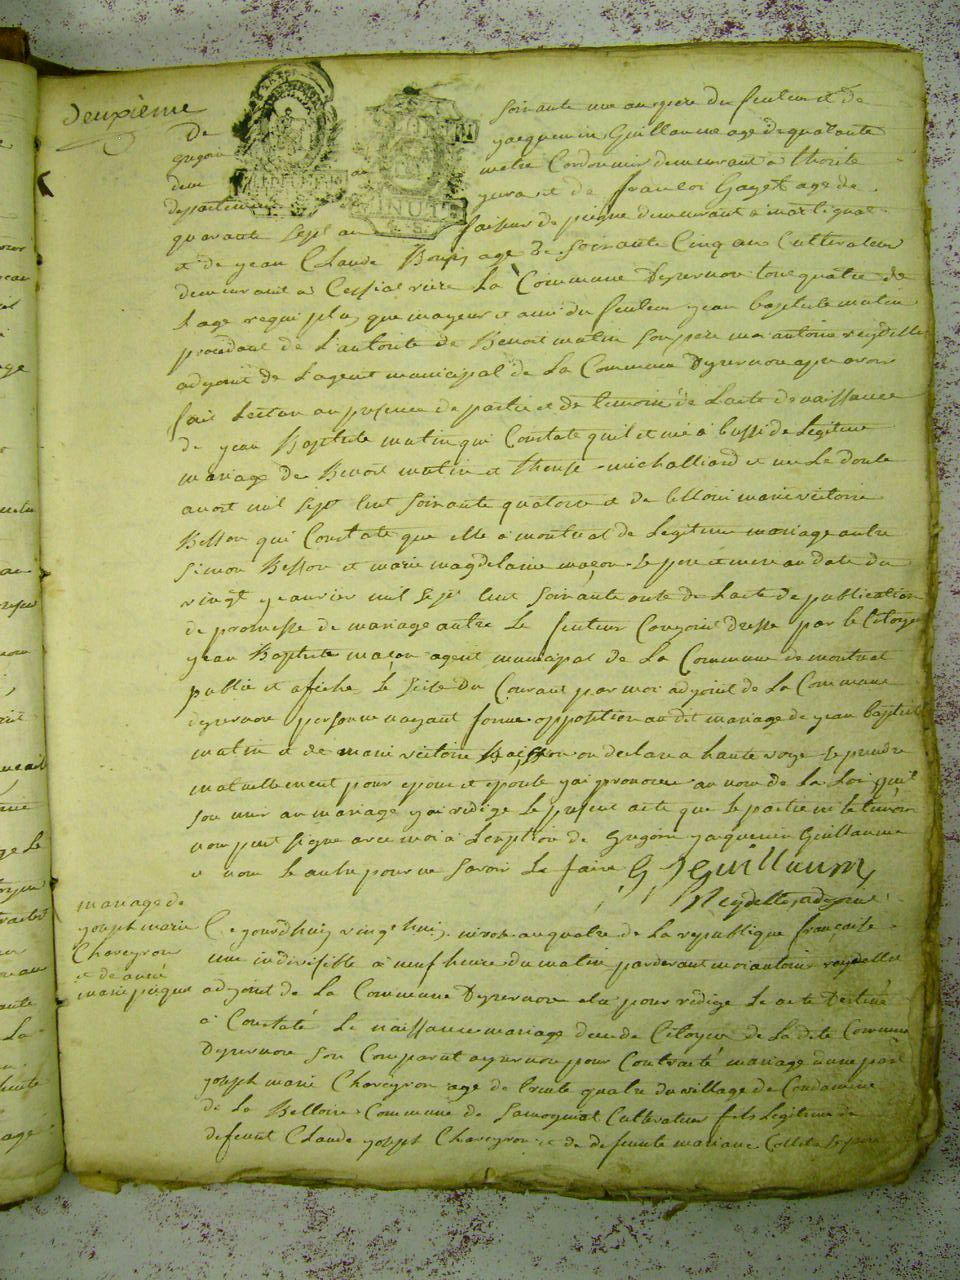 deuxième
soixante une au père du futeur et de
de jacquemin Guillaume age de quarante
gregoire maitre Cordonnier demeurant a thoirete
dem jura et de francoi Gayet age de
departement
quarante sept an faiseur de peigne demeurant a martignat
et de jean Claude age de soixante Cinq an Cultivateur
demeurant a Cessiat rière La Commune Dyzernore tous quatre de
L age requi plus que mageur et ami du futeur jean baptiste matin
procedant de L'autorite de Benoit matin son pere moi antoine reydellet
adjoint de L'agent municipal de La Commune Dyzernore apre avoir
fait Lecture en presence de partie et de temoin de Lacte de naissance
de jean Baptiste matin qui Constate quil et né a bussi de Legitime
mariage de Benoit matin et therese michalliard et ne Le douse
avost mil sept sent soixante quatorse et de Celloui marie victoire
Besson qui Constate que elle a montreal de Legitime mariage entre
Simon Besson et marie magdelaine maçon Le pere et mere en date du
vingt janvier mil sept sent soixante onse de Lacte de publication
de promesse de mariage entre Le futeur Conjoint dresse par le Citoyen
jean Baptiste maçon agent municipal de La Commune de montreal
publie et afiche Le seise du Courant par moi adjoint de La Commune
dyzernore personne nayant forme opposition au dit mariage de jean baptiste
matin et de marie victoire Besson on declare a haute voye se prendre
mutuellement pour epoux et epouse jai prononce au nom de La Loi quil
son unie en mariage jai redige Le present acte que Le partie ni Le temoin
non puet signe avec moi a Lexeption de Gregoire jaquemin Guillaume
et non Le autre pour ne savoir La faire G J Guillaume
Reydellet adjoint
mariage de
joseph marie
Chaveyron
et de
marie
Ce jourdhuy vingt huit nivose an quatre de La republique françoise
une indivisible a neuf heure du matin pardevant moi antoine reydellet
adjoint de La Commune Dyzernore elu pour redige Le acte Destiné
a Constaté Le naissance mariage dece de Citoyen de La dite Commune
Dyzernore son Comparut a yzernore pour Contracté mariage dune part
joseph marie Chaveyron age de trente quatre du village de Condamine
de La Belloire Commune de Samognat Cultivateur fils Legitime de
defeunt Claude joseph Chaveyron et de defeunte mariane Collet